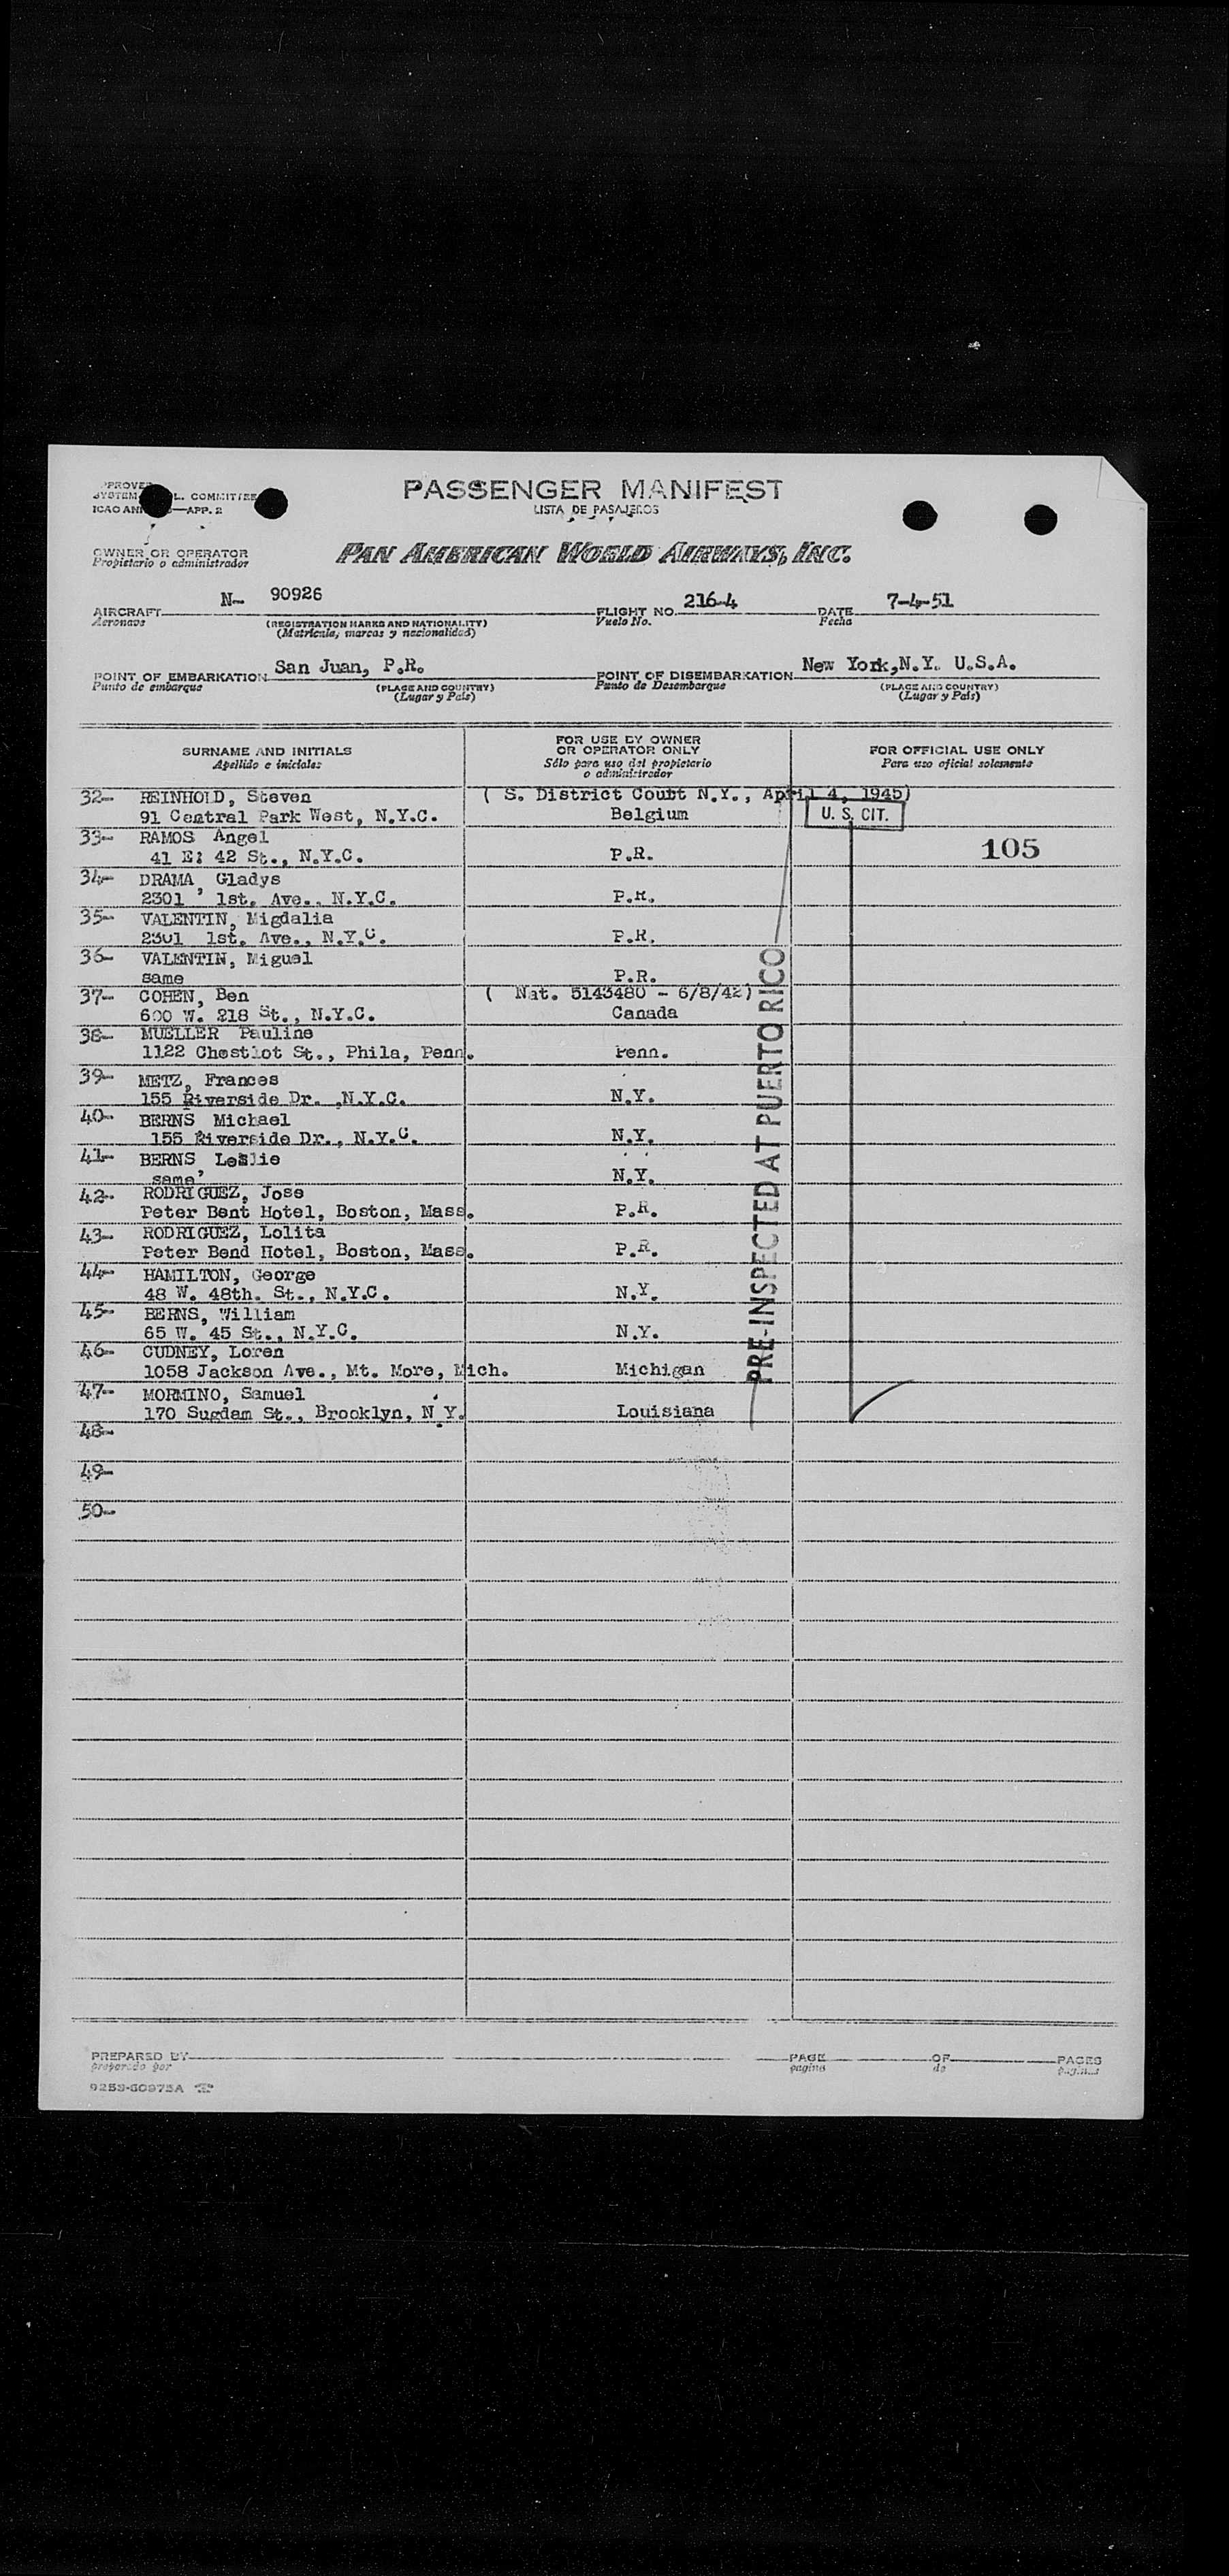 PASSENGER MANIFEST
LISTA DE PASAJEROS
L. COMMITTEE
ICAO —APP. 2
OWNER OR OPERATOR
Propietario o administrador
PAN AMERICAN WORLD AIRWAYS, INC.
AIRCRAFT N- 90926 FLIGHT NO. 216-4 DATE 7-4-51
Aeronave (REGISTRATION MARKS AND NATIONALITY) Vuelo No. Fecha
(Matrícula, marcas y nacionalidad)
POINT OF EMBARKATION San Juan, P.R. POINT OF DISEMBARKATION New York, N.Y. U.S.A.
Punto de embarque (PLACE AND COUNTRY) Punto de Desembarque (PLACE AND COUNTRY)
(Lugar y País) (Lugar y País)
SURNAME AND INITIALS
Apellido e iniciales
FOR USE BY OWNER
OR OPERATOR ONLY
Sólo para uso del propietario
o administrador
FOR OFFICIAL USE ONLY
Para uso oficial solamente
32- REINHOLD, Steven ( S. District Coubt N.Y., April 4, 1945)
91 Central Park West, N.Y.C. Belgium U. S. CIT.
33- RAMOS Angel
41 E: 42 St., N.Y.C. P.R. 105
34- DRAMA, Gladys
2301 1st. Ave., N.Y.C. P.R.
35- VALENTIN, Migdalia
2301 1st. Ave., N.Y.C. P.R.
36- VALENTIN, Miguel
same P.R.
37- COHEN, Ben ( Nat. 5143480 - 6/8/42)
600 W. 218 St., N.Y.C. Canada
38- MUELLER Pauline
1122 St., Phila, Penn. Penn.
39- METZ, Frances
155 Riverside Dr. ,N.Y.C. N.Y.
40- BERNS Michael
155 Riverside Dr., N.Y.C. N.Y.
41- BERNS, Leslie
same N.Y.
42- RODRIGUEZ, Jose
Peter Bent Hotel, Boston, Mass. P.R.
43- RODRIGUEZ, Lolita
Peter Bend Hotel, Boston, Mass. P.R.
44- HAMILTON, George
48 W. 48th. St., N.Y.C. N.Y.
45- BERNS, William
65 W. 45 St., N.Y.C. N.Y.
46- CUDNEY, Loren
1058 Jackson Ave., Mt. More, Mich. Michigan
47- MORMINO, Samuel
170 Sugdam St., Brooklyn, N.Y. Louisiana
48-
49-
50-
PRE-INSPECTED AT PUERTO RICO
PREPARED BY PAGE OF PAGES
preparado por pagina de paginas